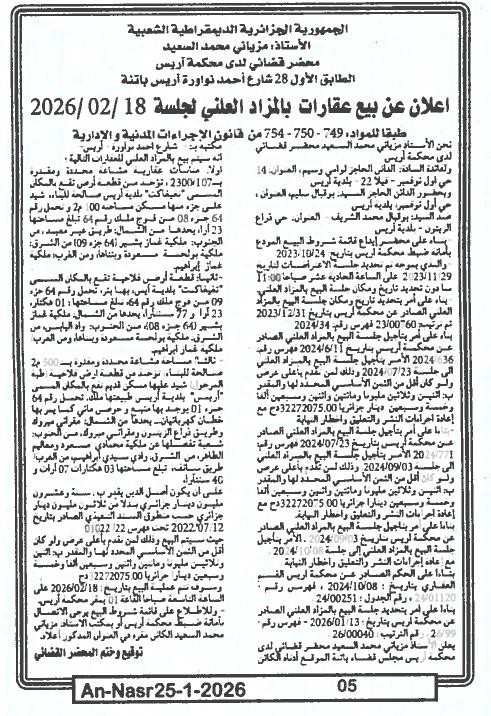 الجمهورية الجزائرية الديمقراطية الشعبية
الأستاذ: مزياني محمد السعيد
محضر قضائي لدى محكمة آريس
الطابق الأول 28 شارع أحمد نواورة آريس باتنة
اعلان عن بيع عقارات بالمزاد العلني لجلسة 18 /02 /2026
طبقا للمواد: 749 - 750 - 754 من قانون الإجراءات المدنية و الإدارية
نحن الأستاذ مزياني محمد السعيد محضر قضائي
لدى محكمة آريس
ولفائدة السادة: الدائن الحاجز لوامي وسيم، العنوان: 14
حي أول نوفمبر - فيلا 22 - بلدية آريس
وبحضور الدائن الحاجز السيد: بوقبال سليم، العنوان:
حي أول نوفمبر - بلدية آريس
ضد السيد: بوقبال محمد الشريف - العنوان: حي ذراع
الزيتون - بلدية آريس
بناء على محضر إيداع قائمة شروط البيع المودع
بأمانة ضبط محكمة آريس بتاريخ 2023/10/24
والذي بموجبه تم تحديد جلسة الاعتراضات لتاريخ
2023/11/29 على الساعة الحادية عشر صباحا 11:00
بناء على أمر بتحديد تاريخ ومكان جلسة البيع بالمزاد
العلني الصادر عن محكمة آريس بتاريخ 2023/12/31
تم ترتيبه 23/00760 فهرس رقم: 24/34
بناء على أمر بتأجيل جلسة البيع بالمزاد العلني الصادر
عن محكمة آريس بتاريخ 2024/6/11 فهرس رقم:
الأمر بتأجيل جلسة البيع بالمزاد العلني
الى جلسة 2024/07/23 وذلك لمن تقدم بأعلى عرض
ولو كان أقل من الثمن الأساسي المحدد لها والمقدر
ب: اثنين وثلاثين مليونا ومائتين واثنين وسبعين ألفا
وخمسة وسبعين دينار جزائرية 32272075.00دج مع
إعادة إجراءات النشر والتعليق واخطار النيابة
بناء على أمر بتأجيل جلسة البيع بالمزاد العلني الصادر
عن محكمة آريس بتاريخ 2024/07/23 فهرس رقم:
الأمر بتأجيل جلسة البيع بالمزاد العلني
الى جلسة 2024/09/03 وذلك لمن تقدم بأعلى عرض
ولو كان أقل من الثمن الأساسي المحدد لها والمقدر
ب: اثنين وثلاثين مليونا ومائتين واثنين وسبعين ألفا
وخمسة وسبعين دينارا جزائريا 32272075.00دج مع
إعادة إجراءات النشر والتعليق واخطار النيابة
بناءا على أمر بتأجيل جلسة البيع بالمزاد العلني الصادر
عن محكمة آريس بتاريخ 2024/09/03 الأمر بتأجيل
جلسة البيع بالمزاد العلني إلى جلسة 2024/10/08
مع إعادة إجراءات النشر والتعليق واخطار النيابة
بناءا على الحكم الصادر عن محكمة آريس القسم
العقاري بتاريخ: 2024/10/08 ، فهرس رقم:
24/01120 رقم الجدول: 24/00251
بناءا على أمر بتحديد جلسة البيع بالمزاد العلني الصادر
عن محكمة آريس بتاريخ: 2026/01/13 - فهرس رقم:
26/99 رقم الترتيب: 26/00040
يعلن الأستاذ مزياني محمد السعيد محضر قضائي لدى
محكمة آريس مجلس قضاء باتنة الموقع أدناه الكائن
مكتبه ب: شارع أحمد نواورة - آريس-
أنه سيتم بيع بالمزاد العلني للعقارات التالية:
أولا: منابات عقارية مشاعة محددة ومقدرة
ب107/ 2300، تؤخذ من قطعة أرض تقع بالمكان
المسمى "ثفيغاكت" بلدية آريس صالحة للبناء، شيد
على جزء منها مسكن مساحته 100 م2 و تحمل رقم
64 جزء 08 من فوج ملك رقم 64 تبلغ مساحتها
23 آرا، يحدها من الشمال: طريق غير معبد، من
الجنوب: ملكية غماز بشير (64 جزء 09) من الشرق:
ملكية بولحمسة مسعودة وبناها، ومن الغرب: ملكية
غماز إبراهيم.
-ثانيا: قطعة أرض فلاحية تقع بالمكان المسمى
"ثفيغاكت" بلدية آريس، بها بئر، تحمل رقم 64 جزء
09 من فوج ملك رقم 64، تبلغ مساحتها: 01 هكتار،
23 آرا و 77 سنتيارا، يحدها من الشمال: ملكية غماز
بشير (64 جزء 08)، من الجنوب: واد اليابس، من
الشرق: ملكية بولحمسة مسعودة وبناها، ومن الغرب:
ملكية غماز إبراهيم
-ثالثا: مساحة مشاعة محددة ومقدرة ب 500 م2
صالحة للبناء، تؤخذ من قطعة أرض فلاحية
شيد عليها مسكن قديم تقع بالمكان المسمى
"آريس" بلدية آريس طبيعتها ملك، تحمل رقم 64
جزء 01 يوجد بها منبع و حوض مائي كما يمر بها
خطان كهربائيان، يحدها من الشمال: عقاري مبروك
وطريق ذراع الزيتون وعقاري مبروك، من الجنوب:
شعبة تفصلها عن ملكية محمادي مسعود ومعاليم
الطاهر، من الشرق: وادي سيدي أبراهيم، من الغرب:
طريق سالف، تبلغ مساحتها 03 هكتارات 07 آرات و
40 سنتيارا.
على أن يكون أصل الدين يقدر ب: ستة وعشرون
مليون دينار جزائري بدلا من ثلاثون مليون دينار
جزائري حسب منطوق السند التنفيذي الصادر بتاريخ
2022/07/12 تحت فهرس 01022/22
حيث سيتم البيع وذلك لمن تقدم بأعلى عرض ولو كان
أقل من الثمن الأساسي المحدد لها والمقدر ب: اثنين
وثلاثين مليونا ومائتين واثنين وسبعين ألفا وخمسة
وسبعين دينارا جزائريا 32272075.00 دج
وسوف تتم عملية البيع بتاريخ: 2026/02/18 على
الساعة التاسعة صباحا القاعة 01 بمقر محكمة آريس.
- وللاطلاع على قائمة شروط البيع يرجى الاتصال
بأمانة ضبط محكمة آريس أو بمكتب الأستاذ: مزياني
محمد السعيد الكائن مقره في العنوان المذكور أعلاه.
توقيع وختم المحضر القضائي
An-Nasr25-1-2026
05